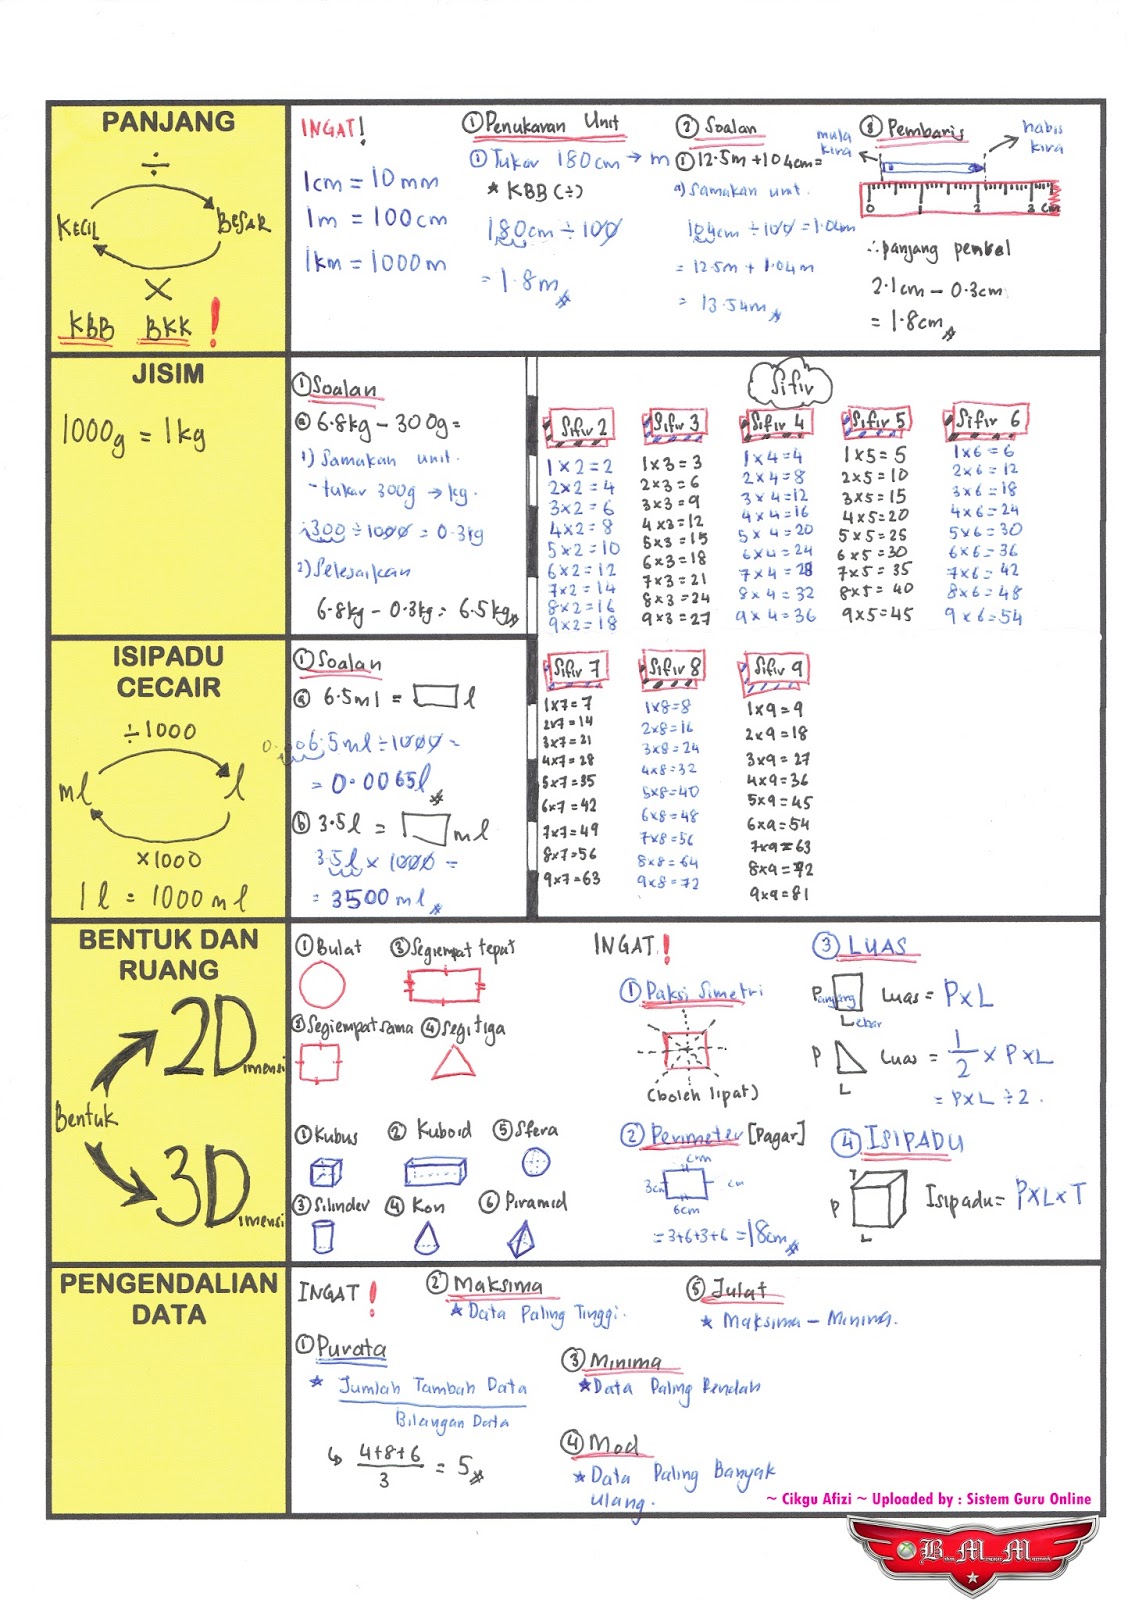 PANJANG
÷
KECIL
BESAR
×
KBB BKK !
INGAT!
1cm = 10mm
1m = 100cm
1km = 1000m
① Penukaran Unit
① Tukar 180cm → m
* KBB (÷)
180cm ÷ 100
= 1.8m
② Soalan
① 12.5m + 104cm =
a) Samakan unit.
104cm ÷ 100 = 1.04m
= 12.5m + 1.04m
= 13.54m
③ Pembaris
mula kira
habis kira
0 1 2 3 cm
∴ panjang pensel
2.1cm – 0.3cm
= 1.8cm
JISIM
1000g = 1kg
① Soalan
ⓐ 6.8kg – 300g =
1) Samakan unit.
- tukar 300g → kg.
300 ÷ 1000 = 0.3kg
2) Selesaikan
6.8kg – 0.3kg = 6.5kg
Sifir
Sifir 2
1×2=2
2×2=4
3×2=6
4×2=8
5×2=10
6×2=12
7×2=14
8×2=16
9×2=18
Sifir 3
1×3=3
2×3=6
3×3=9
4×3=12
5×3=15
6×3=18
7×3=21
8×3=24
9×3=27
Sifir 4
1×4=4
2×4=8
3×4=12
4×4=16
5×4=20
6×4=24
7×4=28
8×4=32
9×4=36
Sifir 5
1×5=5
2×5=10
3×5=15
4×5=20
5×5=25
6×5=30
7×5=35
8×5=40
9×5=45
Sifir 6
1×6=6
2×6=12
3×6=18
4×6=24
5×6=30
6×6=36
7×6=42
8×6=48
9×6=54
ISIPADU
CECAIR
÷1000
ml
l
×1000
1 l = 1000 ml
① Soalan
ⓐ 6.5ml = l
0.006.5ml ÷ 1000 =
= 0.0065l
ⓑ 3.5l = ml
3.5l × 1000 =
= 3500 ml
Sifir 7
1×7=7
2×7=14
3×7=21
4×7=28
5×7=35
6×7=42
7×7=49
8×7=56
9×7=63
Sifir 8
1×8=8
2×8=16
3×8=24
4×8=32
5×8=40
6×8=48
7×8=56
8×8=64
9×8=72
Sifir 9
1×9=9
2×9=18
3×9=27
4×9=36
5×9=45
6×9=54
7×9=63
8×9=72
9×9=81
BENTUK DAN
RUANG
2Dimensi
Bentuk
3Dimensi
① Bulat
③ Segiempat tepat
② Segiempat sama
④ Segitiga
① Kubus
② Kuboid
⑤ Sfera
③ Silinder
④ Kon
⑥ Piramid
INGAT!
① Paksi Simetri
(boleh lipat)
② Perimeter [Pagar]
cm
3cm
cm
6cm
= 3+6+3+6 = 18cm
③ LUAS
Panjang
Lebar
Luas = P×L
P
L
Luas = 1/2 × P×L
= P×L ÷ 2.
④ ISIPADU
T
P
L
Isipadu = P×L×T
PENGENDALIAN
DATA
INGAT!
① Purata
* Jumlah Tambah Data
Bilangan Data
↳ 4+8+6
3
= 5
② Maksima
* Data Paling Tinggi.
③ Minima
* Data Paling Rendah
④ Mod
* Data Paling Banyak
ulang.
⑤ Julat
* Maksima – Minima.
~ Cikgu Afizi ~ Uploaded by : Sistem Guru Online
B.M.M